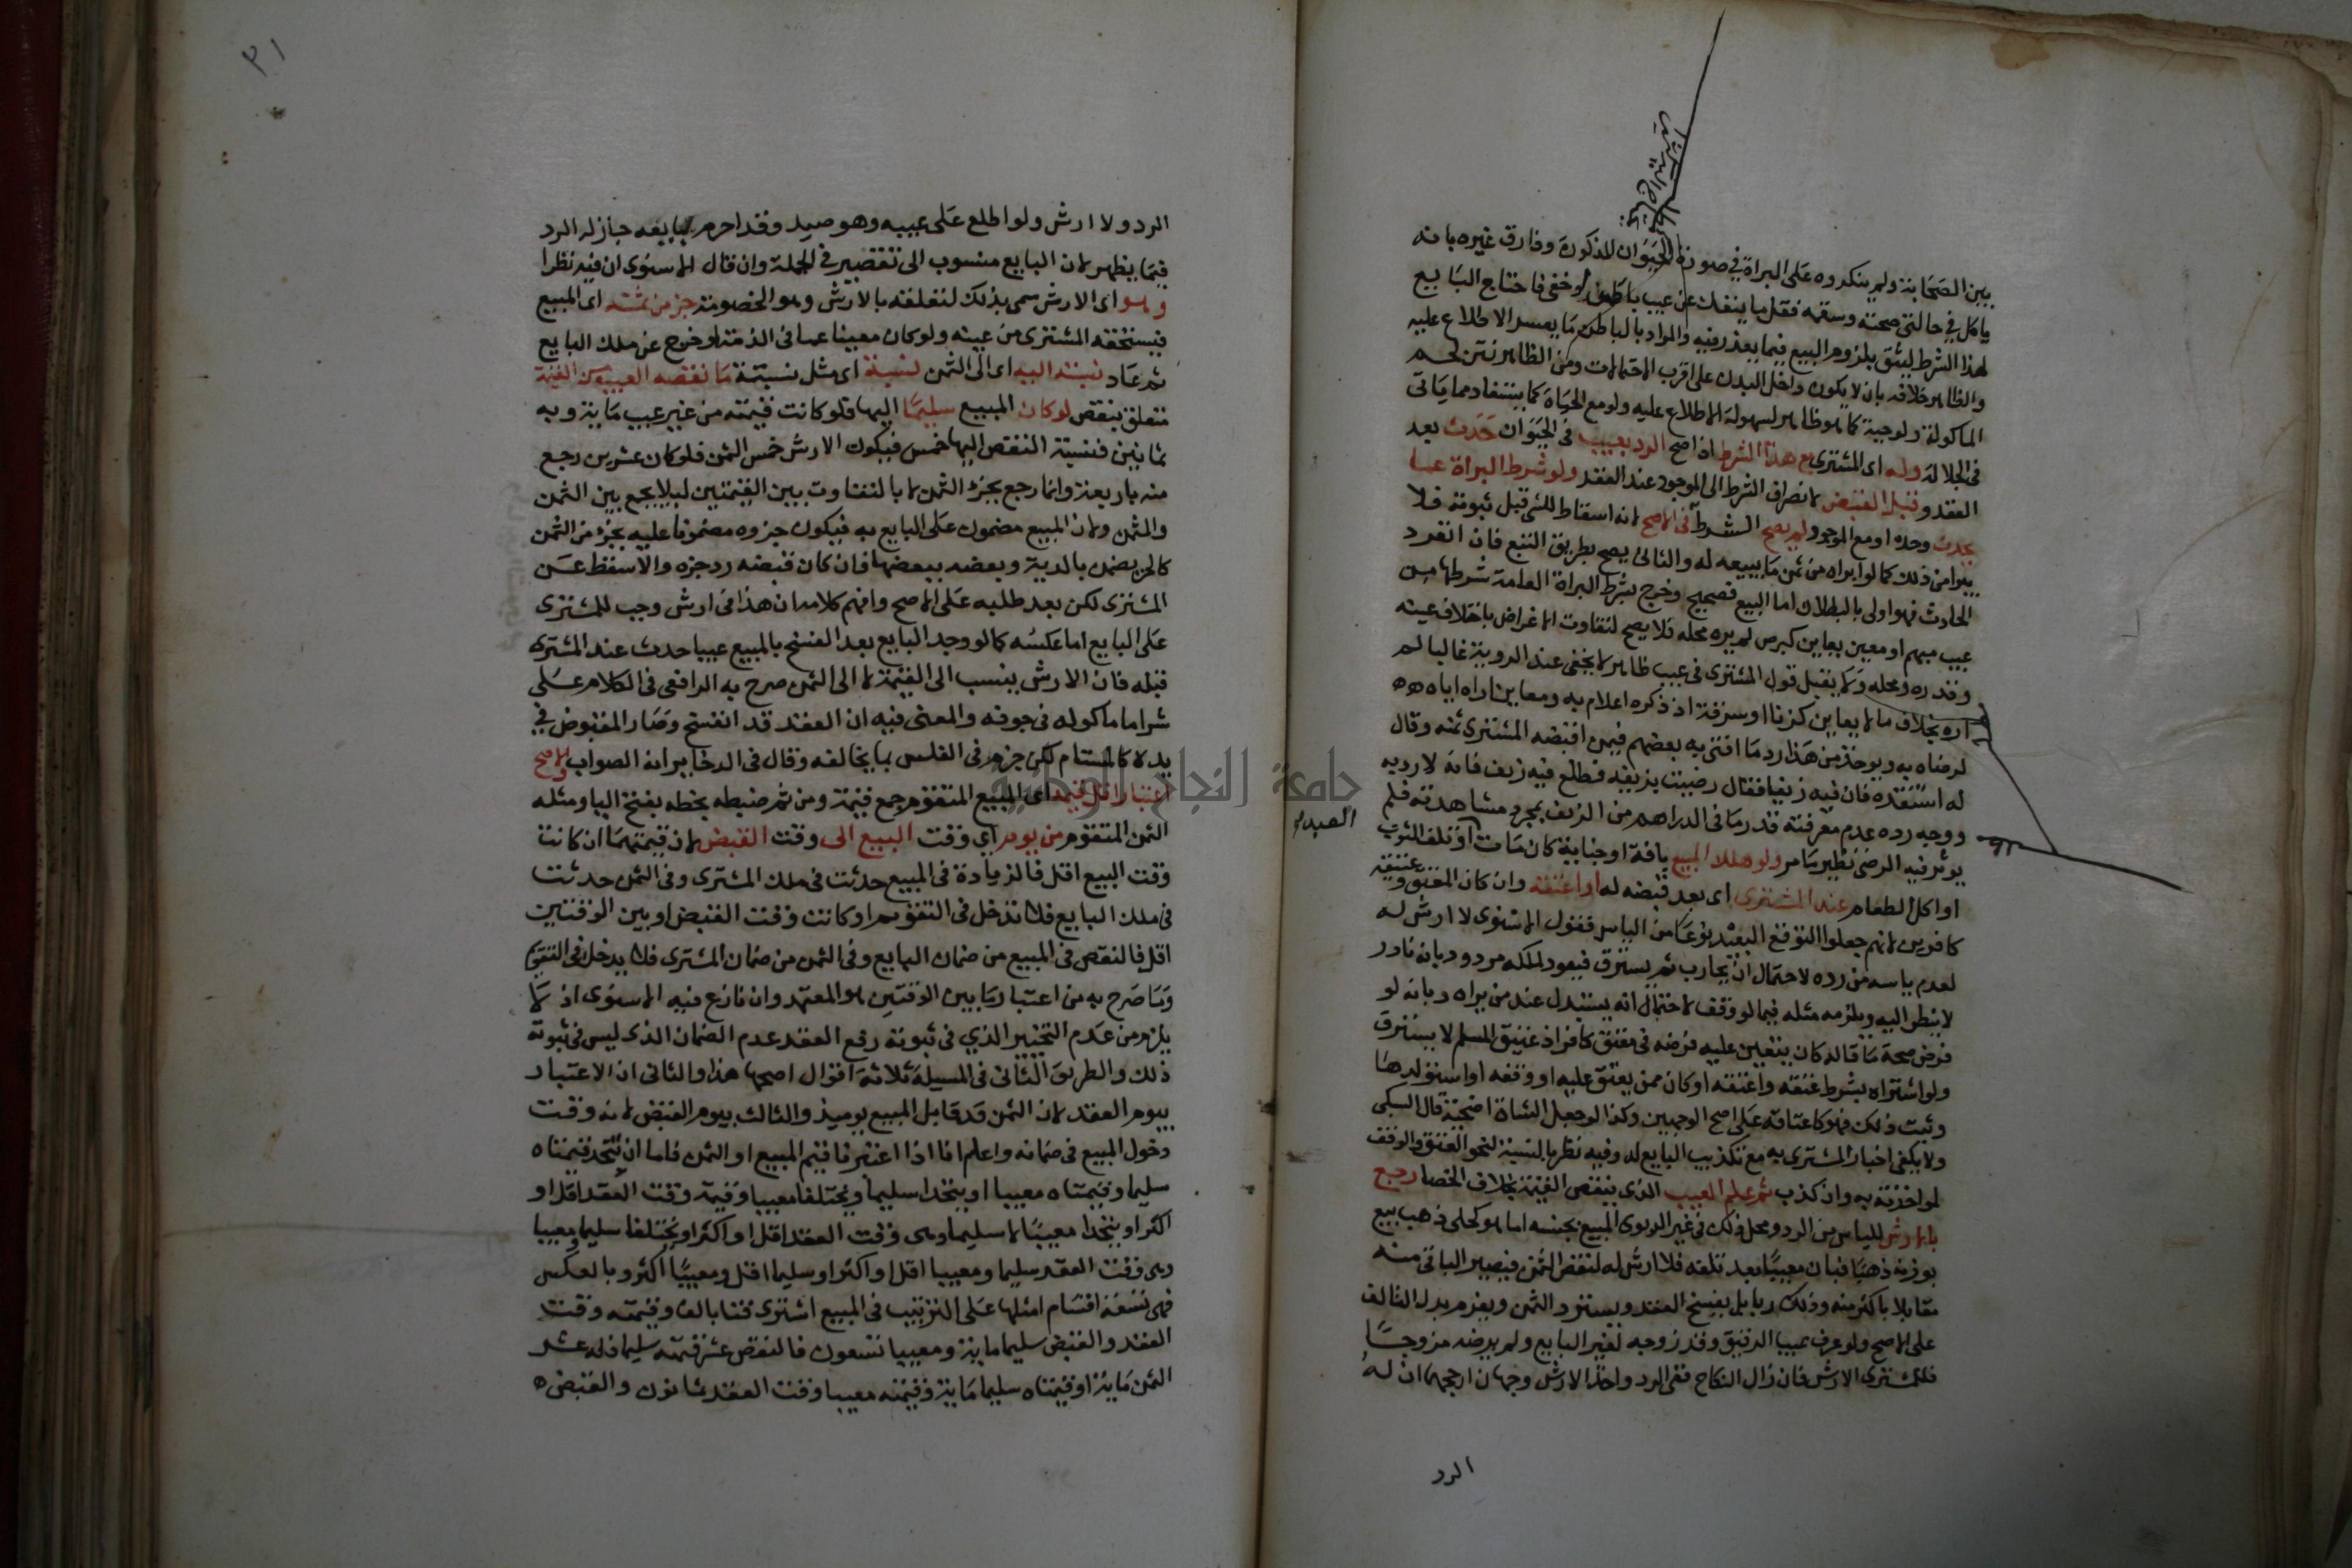 بين الصحابة ولم ينكروه على البراة في صورة الحيوان المذكورة وفارق غيره بانه
ياكل في حالتي صحته وسقمه فقل ما ينفك عن عيب باطن او خفى فاحتاج البايع
لهذا الشرط ليثق بلزوم البيع فيما يعذر فيه والمراد بالباطن ما يعسر الاطلاع عليه
والظاهر خلافه بان لا يكون داخل البدن على اقرب الاحتمالات ومن الظاهر نتن لحم
الماكولة ولو حية كما هو ظاهر لسهولة الاطلاع عليه ولو مع الحياة كما يستفاد مما ياتى
فى الجلالة وله اى المشترى مع هذا الشرط اذا صح الرد بعيب فى الحيوان حدث بعد
العقد وقبل القبض لانصراف الشرط الى الموجود عند العقد ولو شرط البراة عما
يحدث وحده او مع الموجود لم يصح الشرط فى الاصح لانه اسقاط للشى قبل ثبوته فلا
يبرا من ذلك كما لو ابراه من ثمن ما يبيعه له والثانى يصح بطريق التبع فان انفرد
الحادث فهو اولى بالبطلان اما البيع فصحيح وخرج بشرط البراة العامة شرطها من
عيب مبهم او معين يعاين كبرص لم يره محله فلا يصح لتفاوت الاغراض باختلاف عينه
وقدره ومحله ولم يقبل قول المشترى فى عيب ظاهر لا يخفى عند الروية غالبا لم
اره بخلاف ما لا يعاين كزنا او سرقة اذ ذكره اعلام به ومعاين اراه اياه
لرضاه به ويوخذ من هذا رد ما افتى به بعضهم فيمن اقبضه المشترى ثمنه وقال
له استنقده فان فيه زيفا فقال رضيت بزيفه فطلع فيه زيف فانه لا رد به
ووجه رده عدم معرفته قدر ما فى الدراهم من الزيف بمجرد مشاهدته فلم
يوثر فيه الرضى نظير ما مر ولو هلك المبيع بافة او جناية كان مات او تلف الثوب
العبد
او اكل الطعام عند المشترى اى بعد قبضه له او اعتقه وان كان المعتق وعتيقه
كافرين لانهم جعلوا التوقع البعيد نوعا من الياس فقول الاسنوى لا ارش له
لعدم ياسه من رده لاحتمال ان يحارب ثم يسترق فيعود لملكه مردود بانه نادر
لا ينظر اليه ويلزمه مثله فيما لو وقف لاحتمال انه يستبدل عند من يراه وبانه لو
فرض صحة ما قاله كان يتعين عليه فرضه فى معتق كافر اذ عتيق المسلم لا يسترق
ولو اشتراه بشرط عتقه واعتقه او كان ممن يعتق عليه او وقفه او استولدها
وثبت ذلك فهو كاعتاقه على اصح الوجهين وكذا لو جعل الشاة اضحية قال السبكى
ولا يكفى اخبار المشترى به مع تكذيب البايع له وفيه نظر بالنسبة لنحو العتق والوقف
لمواخذته به وان كذب ثم علم العيب الذى ينقص القيمة بخلاف الخصا رجع
بالارش لليأس من الرد ومحل ذلك فى غير الربوى المبيع بجنسه اما هو كحلى ذهب بيع
بوزنه ذهبا فبان معيبا بعد تلفه فلا ارش له لنقص الثمن فيصير الباقى منه
مقابلا باكثر منه وذلك ربا بل يفسخ العقد ويسترد الثمن ويغرم بدل التالف
على الاصح ولو عرف عيب الرقيق وقد زوجه لغير البايع ولم يرضه مزوجا
فللمشترى الارش فان زال النكاح ففى الرد واخذ الارش وجهان ارجحهما ان له
الرد
٣١
الرد ولا ارش ولو اطلع على عيبه وهو صيد وقد احرم بايعه جاز له الرد
فيما يظهر لان البايع منسوب الى تقصير فى الجملة وان قال الاسنوى ان فيه نظرا
وهو اى الارش سمى بذلك لتعلقه بالارش وهو الخصومة جز من ثمنه اى المبيع
فيستحقه المشترى من عينه ولو كان معينا عما فى الذمة او خرج عن ملك البايع
ثم عاد نسبته اليه اى الى الثمن نسبة اى مثل نسبة ما نقصه العيب من القيمة
متعلق بنقص لو كان المبيع سليما اليها فلو كانت قيمته من غير عيب ماية وبه
ثمانين فنسبة النقص اليها خمس فيكون الارش خمس الثمن فلو كان عشرين رجع
منه باربعة وانما رجع بجز الثمن لا بالتفاوت بين القيمتين ليلا يجمع بين الثمن
والثمن ولان المبيع مضمون على البايع به فيكون جزوه مضمونا عليه بجز من الثمن
كالحر يضمن بالدية وبعضه ببعضها فان كان قبضه رد جزه والا سقط عن
المشترى لكن بعد طلبه على الاصح وافهم كلامه ان هذا فى ارش وجب للمشترى
على البايع اما عكسه كما لو وجد البايع بعد الفسخ بالمبيع عيبا حدث عند المشترى
قبله فان الارش ينسب الى القيمة لا الى الثمن صرح به الرافعى فى الكلام على
شرا ما ماكوله فى جوفه والمعنى فيه ان العقد قد انفسخ وصار المقبوض فى
يده كالمستام لكن جزم فى الفلس بما يخالفه وقال فى الدخاير انه الصواب والاصح
اعتبار اقل قيمه اى المبيع المتقوم جمع قيمة ومن ثم ضبطه بخطه بفتح اليا ومثله
الثمن المتقوم من يوم اي وقت البيع الى وقت القبض لان قيمتهما ان كانت
وقت البيع اقل فالزيادة فى المبيع حدثت فى ملك المشترى وفى الثمن حدثت
فى ملك البايع فلا تدخل فى التقويم او كانت وقت القبض او بين الوقتين
اقل فالنقص فى المبيع من ضمان البايع وفى الثمن من ضمان المشترى فلا يدخل فى التقويم
وما صرح به من اعتبار ما بين الوقتين هو المعتمد وان نازع فيه الاسنوى اذ لا
يلزم من عدم التخيير الذي فى ثبوته رفع العقد عدم الضمان الذى ليس فى ثبوته
ذلك والطريق الثانى فى المسيلة ثلاثة اقوال اصحها هذا والثانى ان الاعتبار
بيوم العقد لان الثمن قد قابل المبيع يوميذ والثالث بيوم القبض لانه وقت
دخول المبيع فى ضمانه واعلم انا اذا اعتبرنا قيم المبيع او الثمن فاما ان تتحد قيمتاه
سليما وقيمتاه معيبا او يتحدا سليما ويختلفا معيبا وقيمته وقت العقد اقل او
اكثر او يتحدا معيبا لا سليما وهى وقت العقد اقل او اكثر او يختلفا سليما ومعيبا
وهى وقت العقد سليما ومعيبا اقل او اكثر او سليما اقل ومعيبا اكثر وبالعكس
فهى تسعة اقسام امثلها على الترتيب فى المبيع اشترى قنا بالف وقيمته وقت
العقد والقبض سليما ماية ومعيبا تسعون فالنقص عشر قيمته سليما فله عشر
الثمن ماية او قيمتاه سليما ماية وقيمته معيبا وقت العقد ثمانون والقبض
جامعة النجاح الوطنية